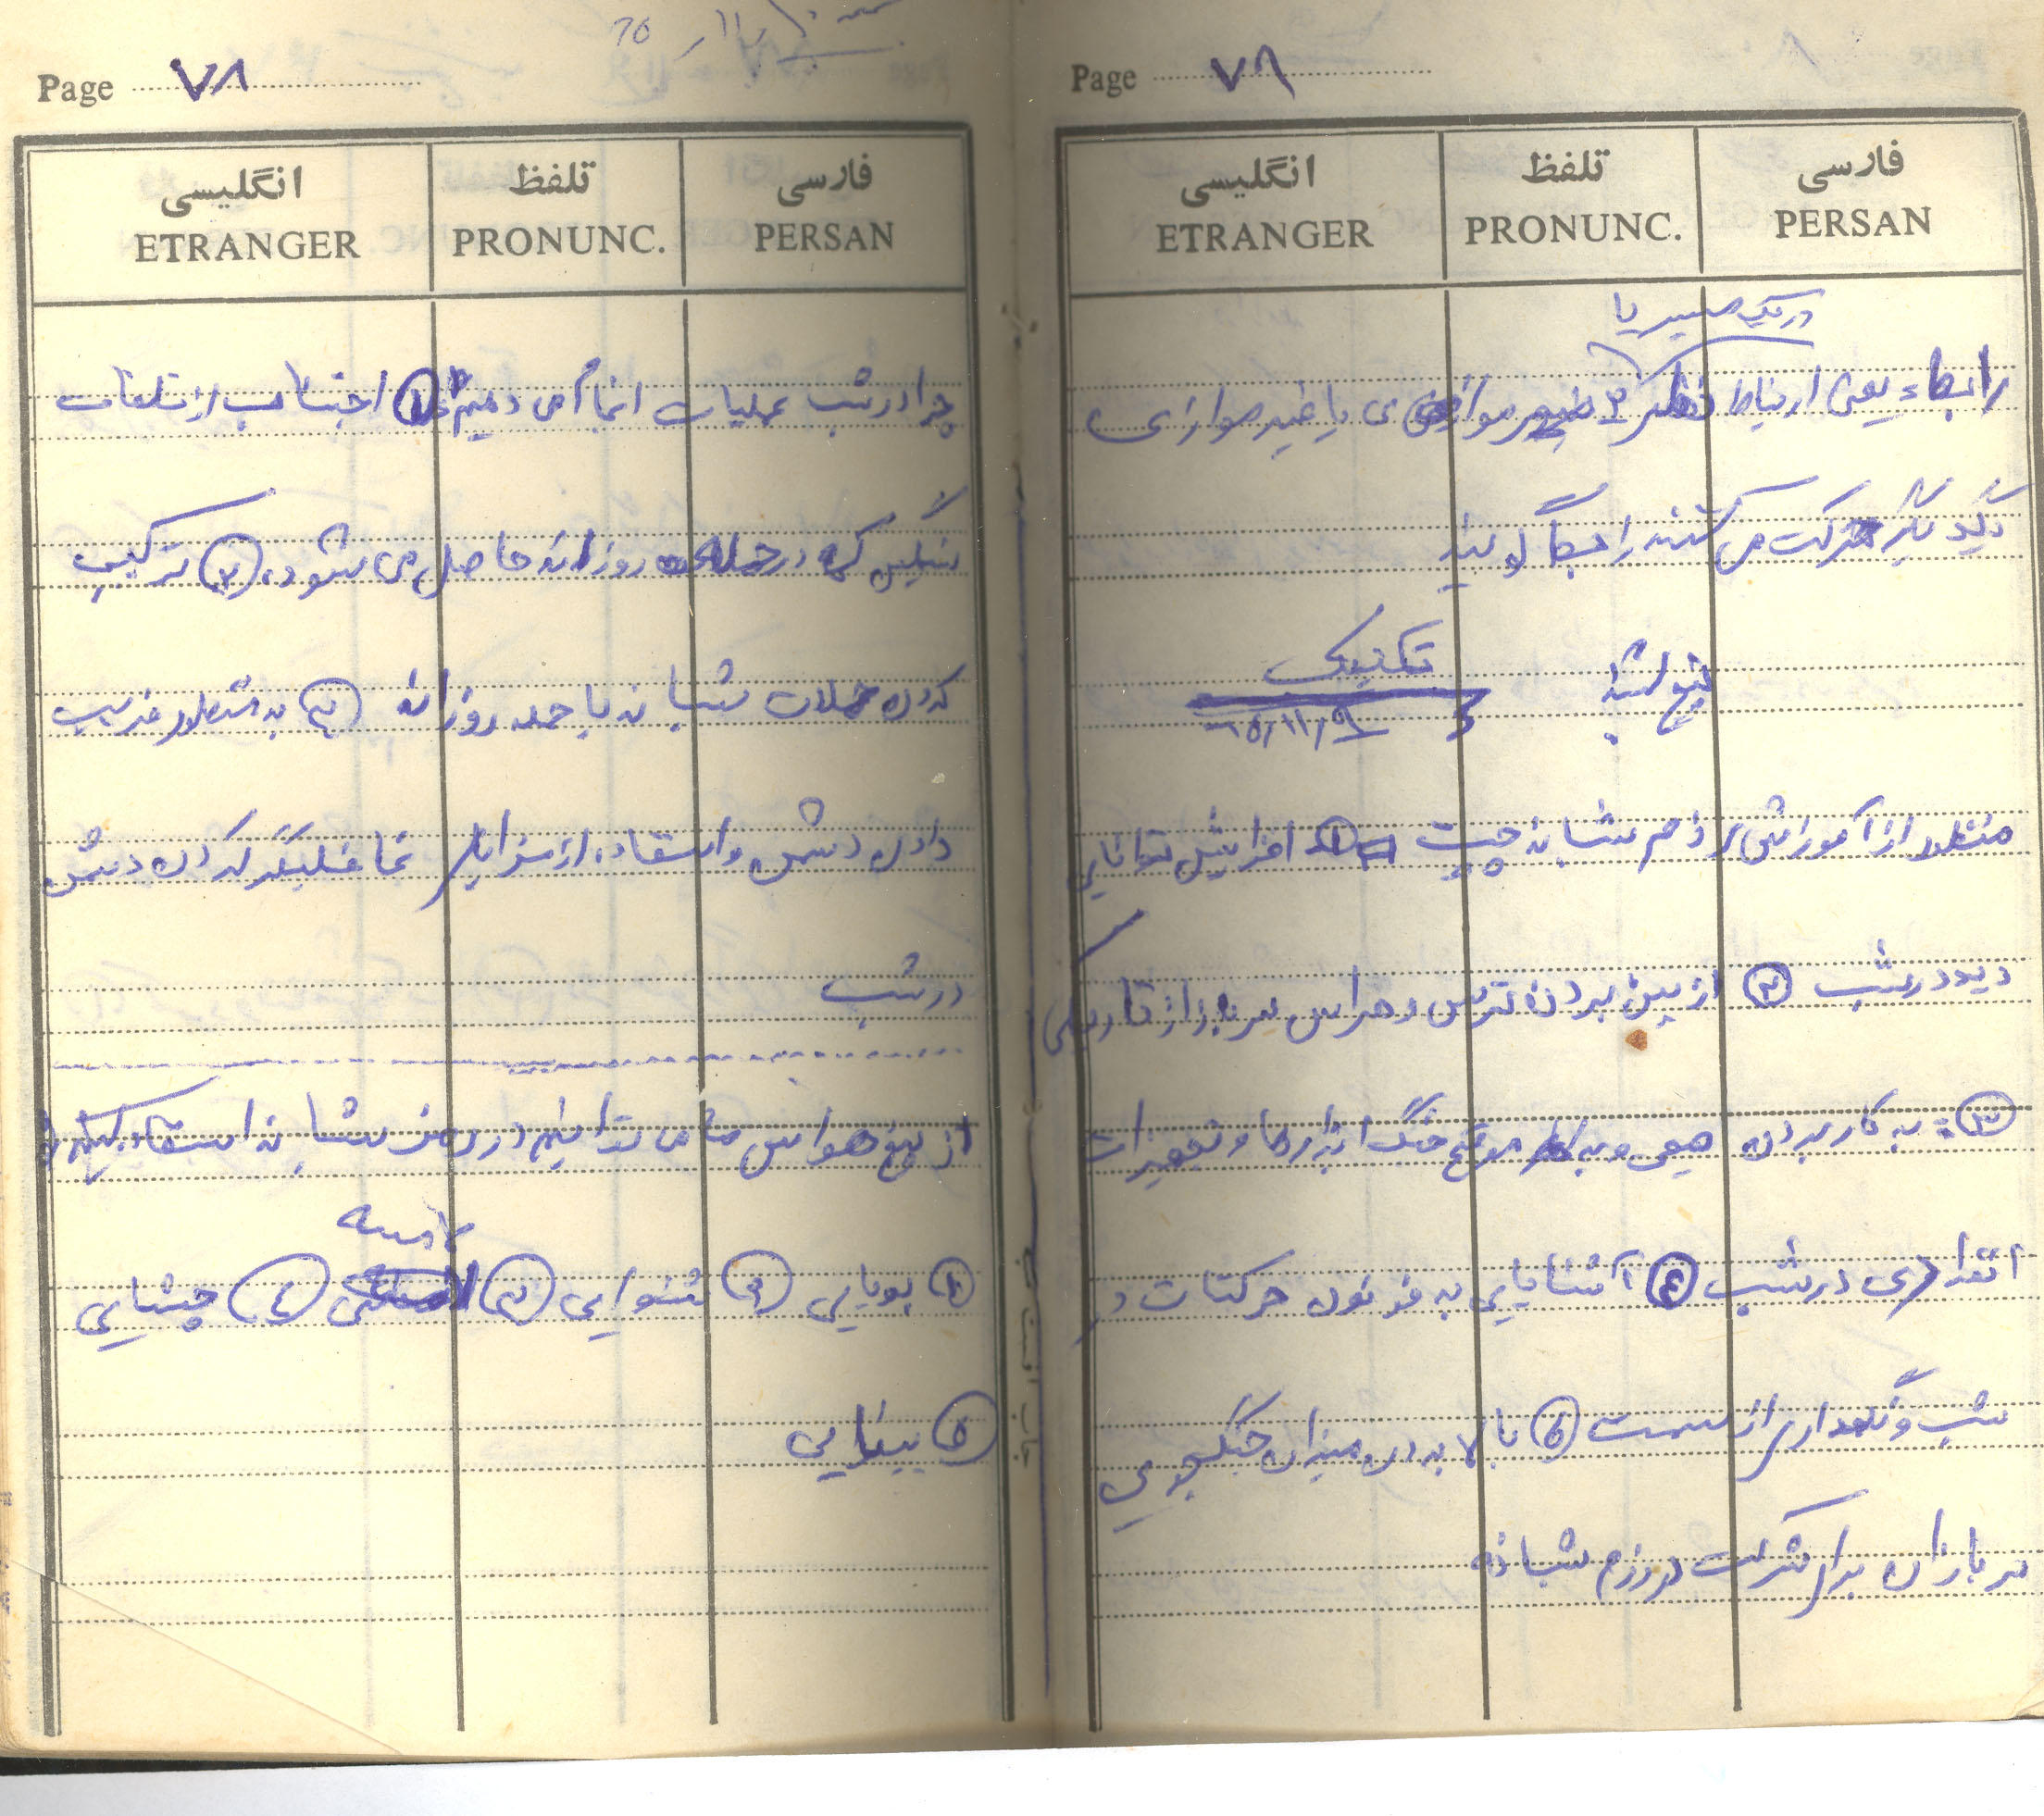 Page ٧٩
فارسی تلفظ انگلیسی
PERSAN PRONUNC. ETRANGER
در یک مسیر با
رابطاء یعنی ارتباط موازی یا غیر موازی
دیگر حرکت می کنند را گویند
پنج شنبه تکنیک
٦٥/١١/٩
منظور از آموزش رزم شبانه چیست ① افزایش توانایی
دید در شب ② از بین بردن ترس و هراس سرباز از تاریکی
③ به کار بردن صحیح و به موقع جنگ ابزارها و تجهیزات
انفرادی در شب ④ آشنایی به فنون حرکات در
شب و نگهداری از سمت ⑤ بالا بردن میزان جنگجویی
سربازان برای شرکت در رزم شبانه
Page ٧٨
فارسی تلفظ انگلیسی
PERSAN PRONUNC. ETRANGER
چرا در شب عملیات انجام می دهیم ① اجتناب از تلفات
سنگین که در حمله روزانه حاصل می شود، ② ترکیب
کردن حملات شبانه با حمله روزانه ③ به منظور فریب
دادن دشمن و استفاده از مزایای غافلگیر کردن دشمن
در شب
از پنج حواس ما می توانیم در رزم شبانه استفاده بکنیم
لامسه
① بویایی ② شنوایی ③ ④ چشایی
⑤ بینایی